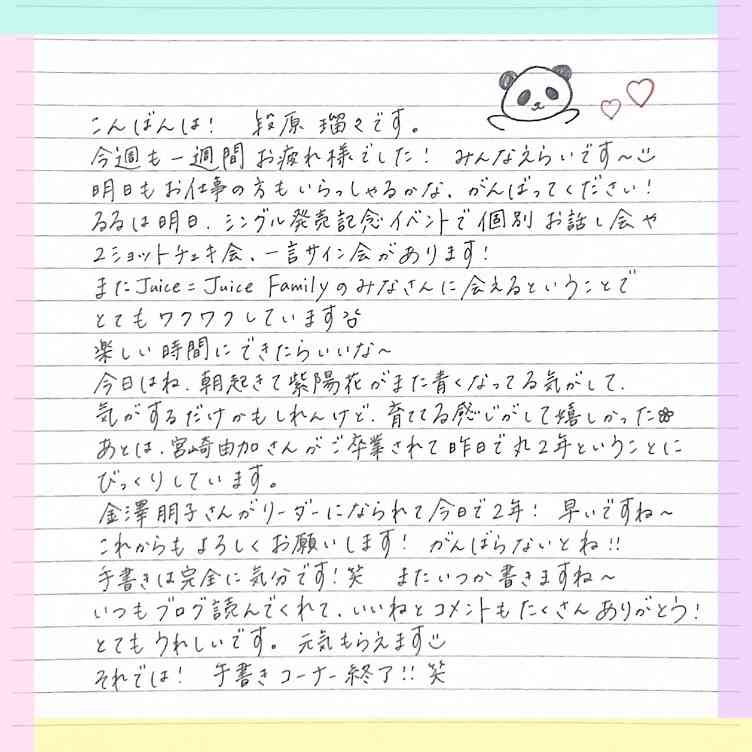 こんばんは！ 段原 瑠々です。
今週も一週間お疲れ様でした！ みんなえらいです〜
明日もお仕事の方もいらっしゃるかな、がんばってください！
るるは明日、シングル発売記念イベントで個別お話し会や
2ショットチェキ会、一言サイン会があります！
またJuice=Juice Familyのみなさんに会えるということで
とてもワクワクしています
楽しい時間にできたらいいな〜
今日はね、朝起きて紫陽花がまた青くなってる気がして、
気がするだけかもしれんけど、育ててる感じがして嬉しかった
あとは、宮崎由加さんがご卒業されて昨日で丸2年ということに
びっくりしています。
金澤朋子さんがリーダーになられて今日で2年！ 早いですね〜
これからもよろしくお願いします！ がんばらないとね!!
手書きは完全に気分です！笑 またいつか書きますね〜
いつもブログ読んでくれて、いいねとコメントもたくさんありがとう！
とてもうれしいです。元気もらえます
それでは！ 手書きコーナー終了!! 笑